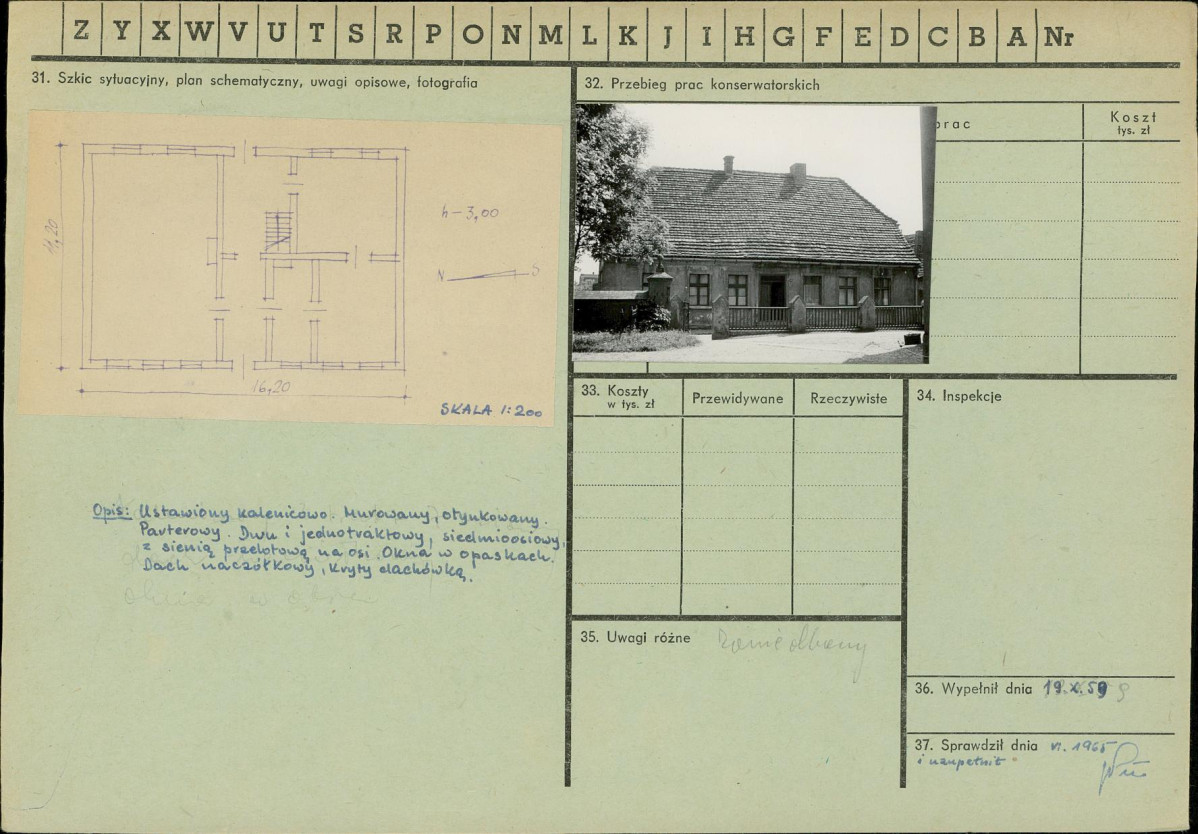 Z Y X W V U T S R P O N M L K J I H G F E D C B A Nr
31. Szkic sytuacyjny, plan schematyczny, uwagi opisowe, fotografia
32. Przebieg prac konserwatorskich
prac
Koszt
tys. zł
11,20
h-3,00
N S
16,20
SKALA 1:200
Opis: Ustawiony kalenicowo. Murowany, otynkowany.
Parterowy. Dwu i jednotraktowy, siedmioosiowy,
z sienią przelotową na osi. Okna w opaskach.
Dach naczółkowy, kryty dachówką.
33. Koszty
w tys. zł
Przewidywane
Rzeczywiste
34. Inspekcje
35. Uwagi różne zaniedbany
36. Wypełnił dnia 19.X.59
37. Sprawdził dnia VI. 1965
i uzupełnił